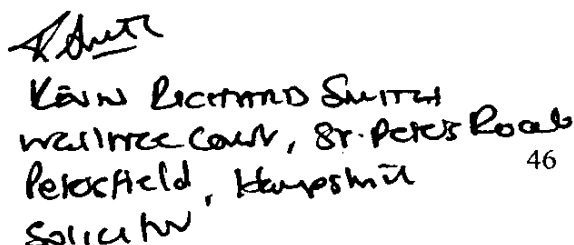 KEVIN RICHARD SMITH
Court, St. Peter's Road
Petersfield, Hampshire
46
Solicitor